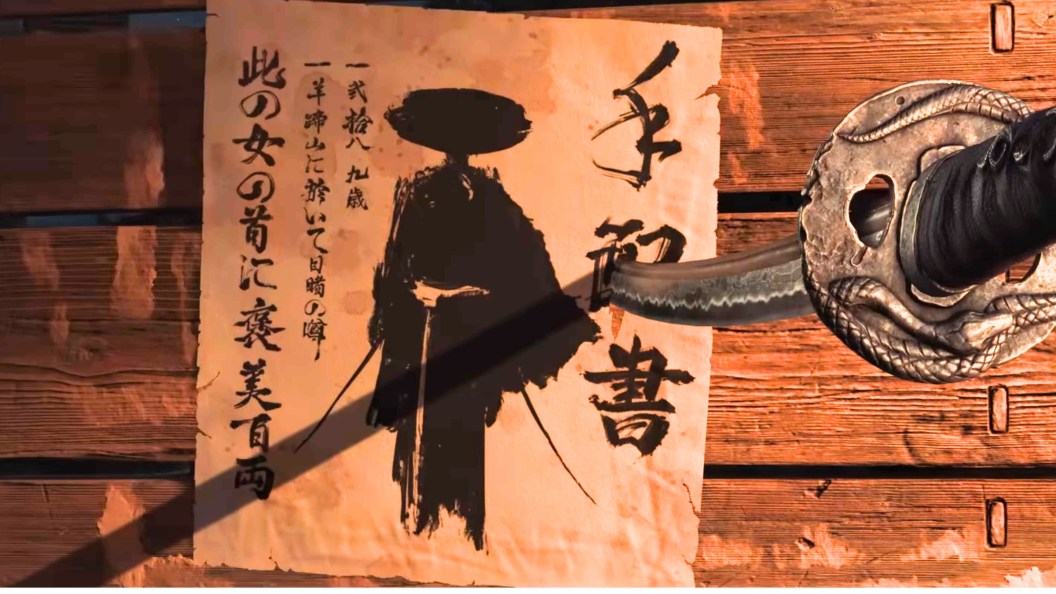 手配書
一弐拾八九歳
一羊蹄山に於いて目睹の噂
此の女の首に褒美百両